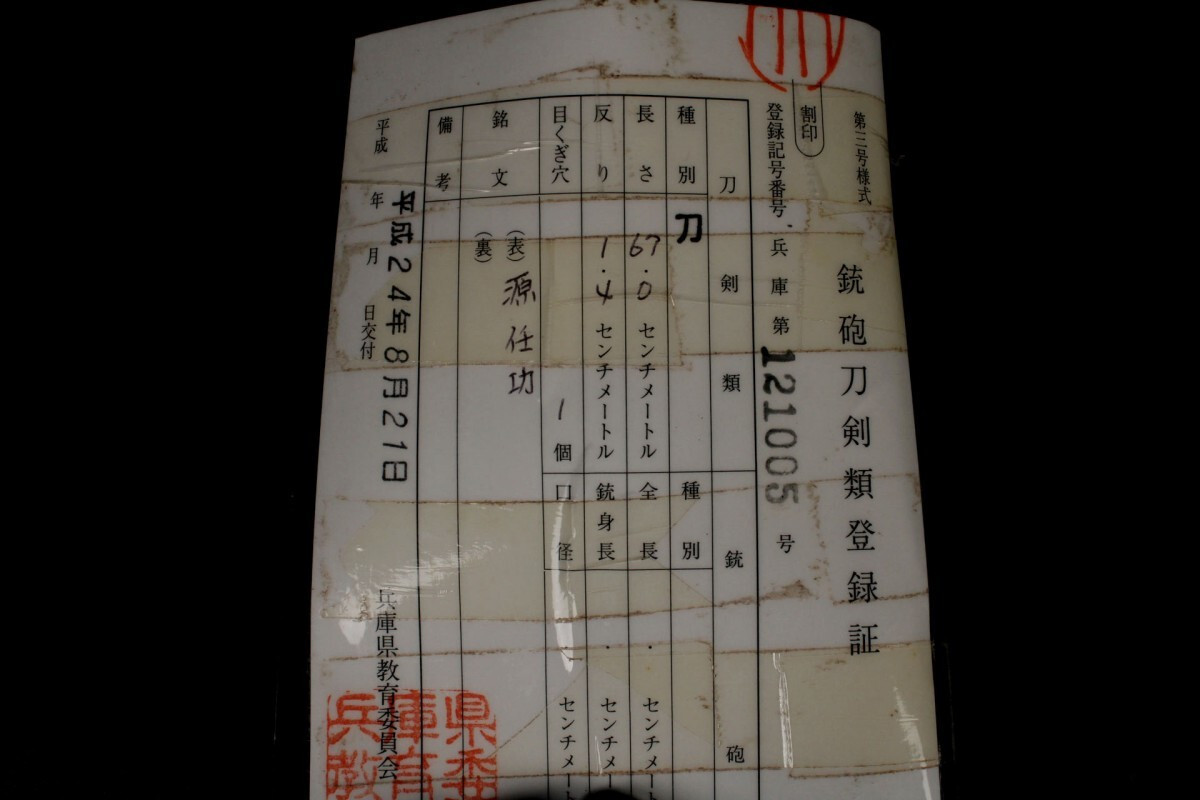 第三号様式
銃砲刀剣類登録証
割印
登録記号番号 兵庫第 121005 号
刀剣類
銃砲
種別
刀
種別
長さ
67.0 センチメートル
全長
. センチメート
反り
1.4 センチメートル
銃身長
. センチメー
目くぎ穴
1個
口径
. センチメート
銘文
(表) 源任功
(裏)
備考
平成 年 月 日交付
平成24年8月21日
兵庫県教育委員会